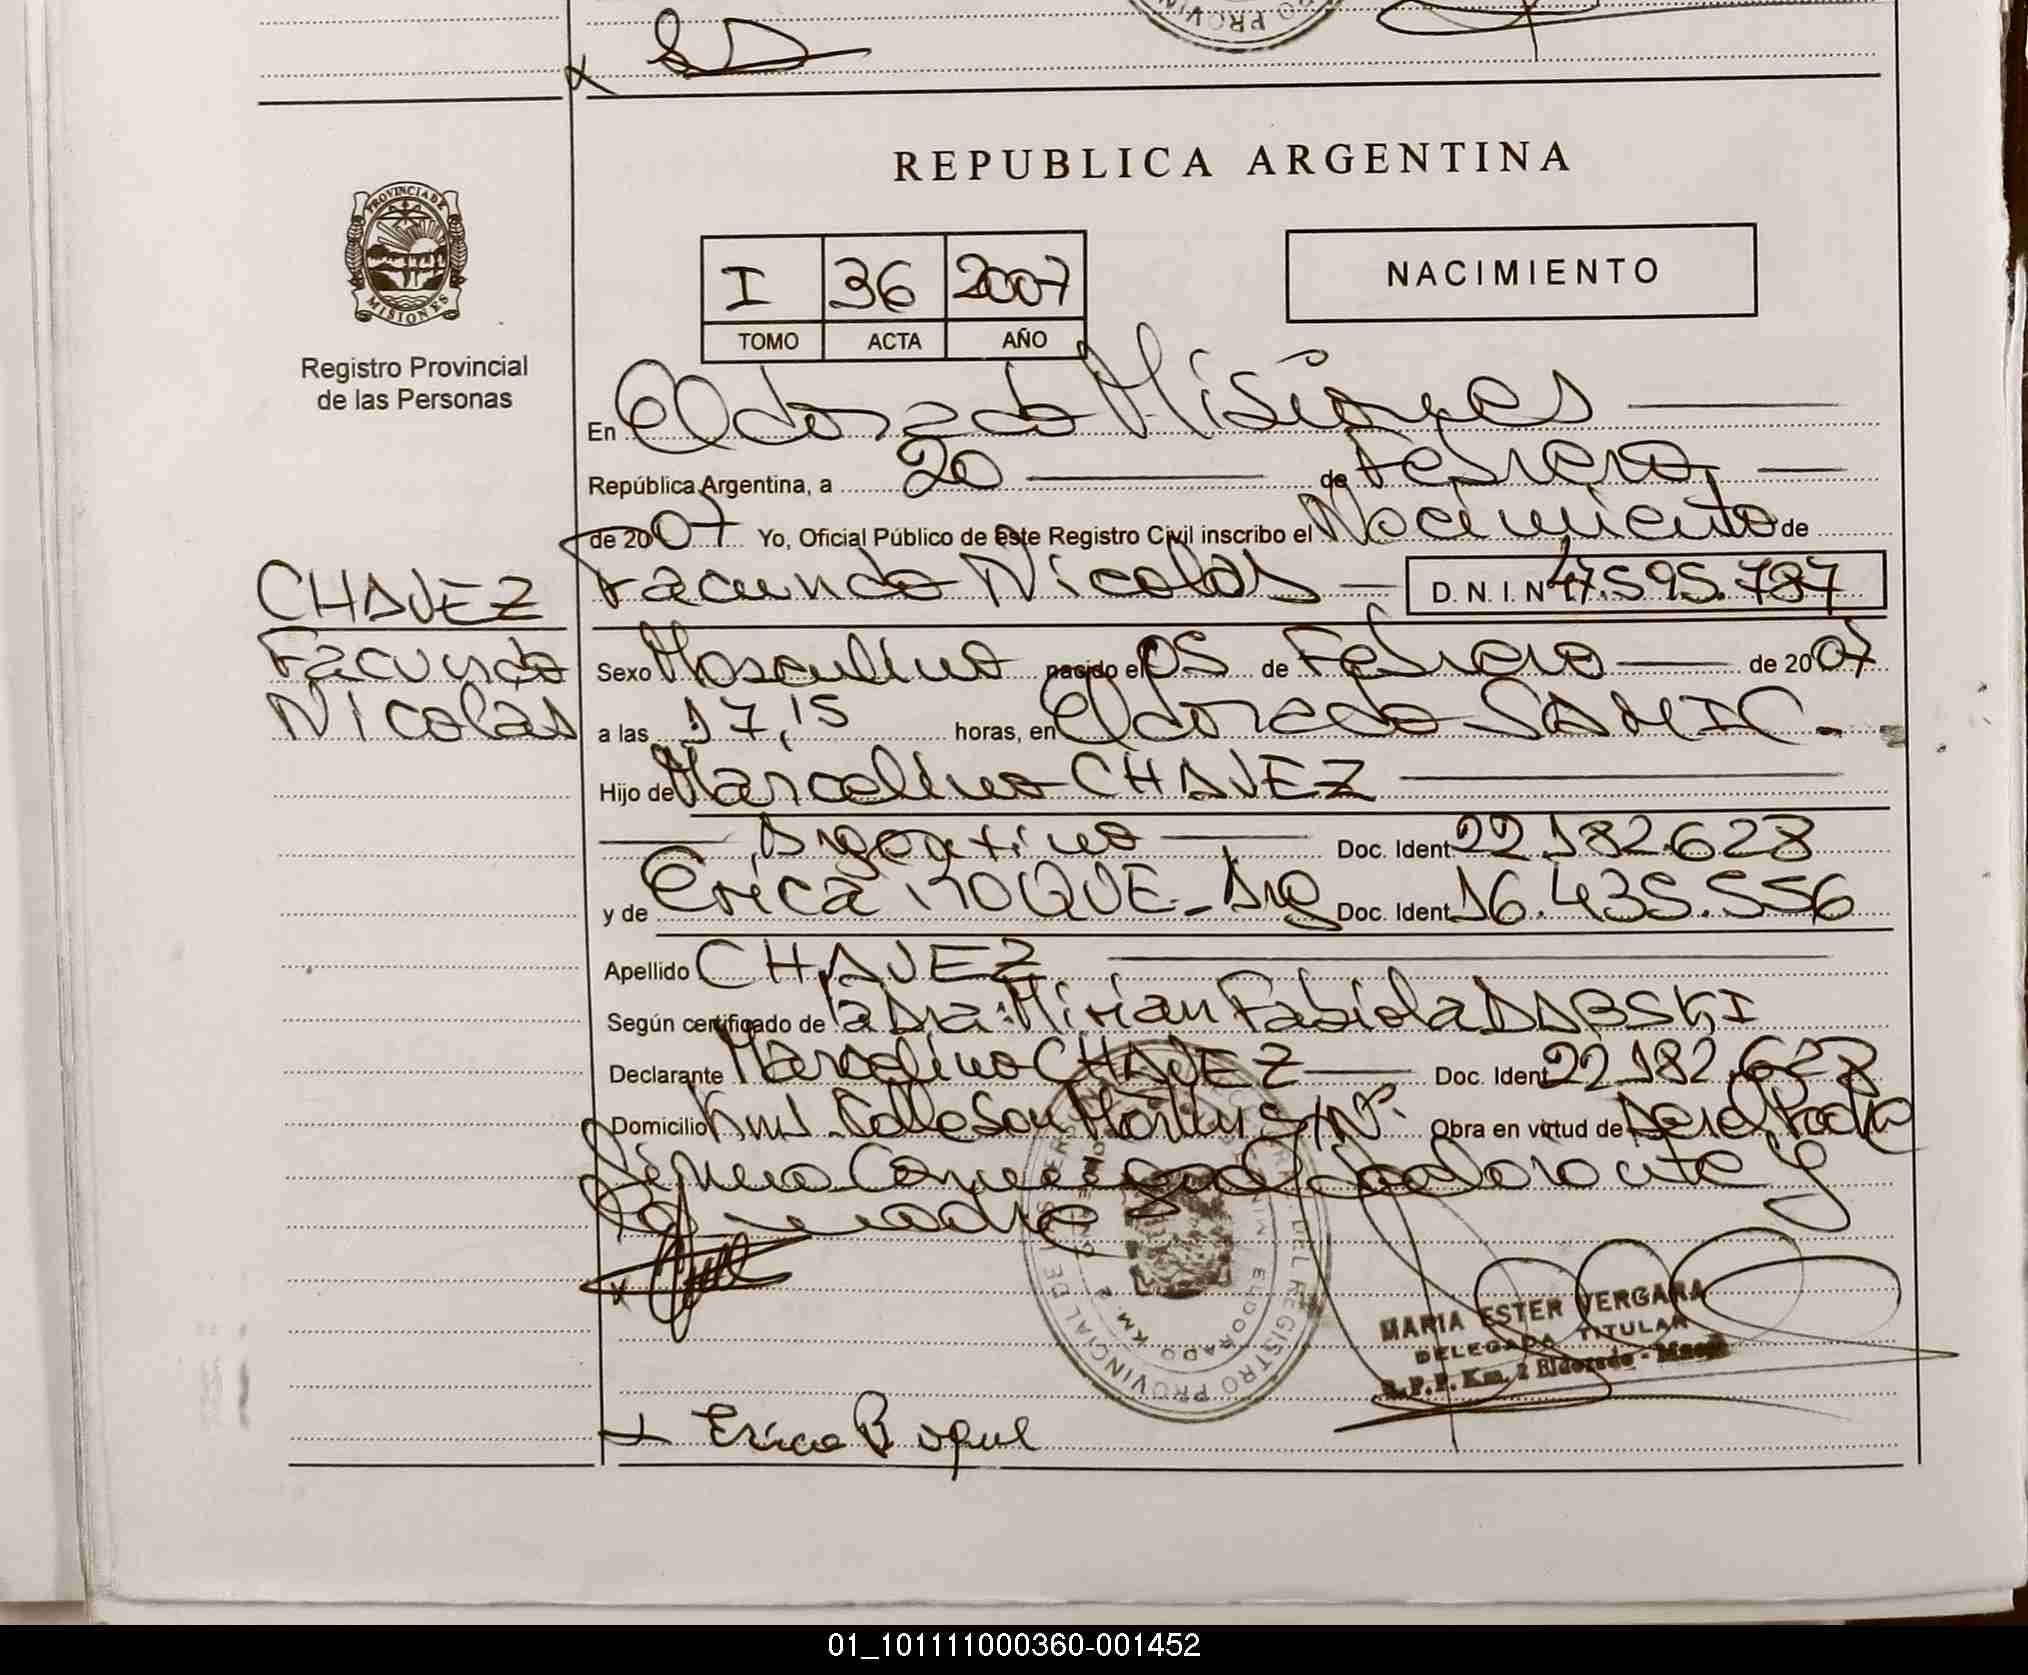 REPUBLICA ARGENTINA
PROVINCIA DE
MISIONES
Registro Provincial
de las Personas
NACIMIENTO
I 36 2007
TOMO ACTA AÑO
En Eldorado Misiones
República Argentina, a 20 de Febrero
de 2007 Yo, Oficial Público de este Registro Civil inscribo el Nacimiento de
Facundo Nicolas D. N. I. N 47.595.787
CHAVEZ
Facundo
Nicolas
Sexo Masculino nacido el 05 de Febrero de 2007
a las 17,15 horas, en Eldorado SAMIC.-
Hijo de Marcelino CHAVEZ
Argentino Doc. Ident 22.182.628
y de Erica ROQUE - Arg Doc. Ident 16.435.556
Apellido CHAVEZ
Según certificado de la Dra: Mirian Fabiola DABSKI
Declarante Marcelino CHAVEZ Doc. Ident 22.182.628
Domicilio Calle San Martin S/Nº. Obra en virtud de Ser el Padre
y
la madre
MARIA ESTER VERGARA
DELEGADA TITULAR
R.P.P. Km. 2 Eldorado - Mnes
REGISTRO PROVINCIAL DE
ELDORADO KM. 2
Erica Roque
01_101111000360-001452